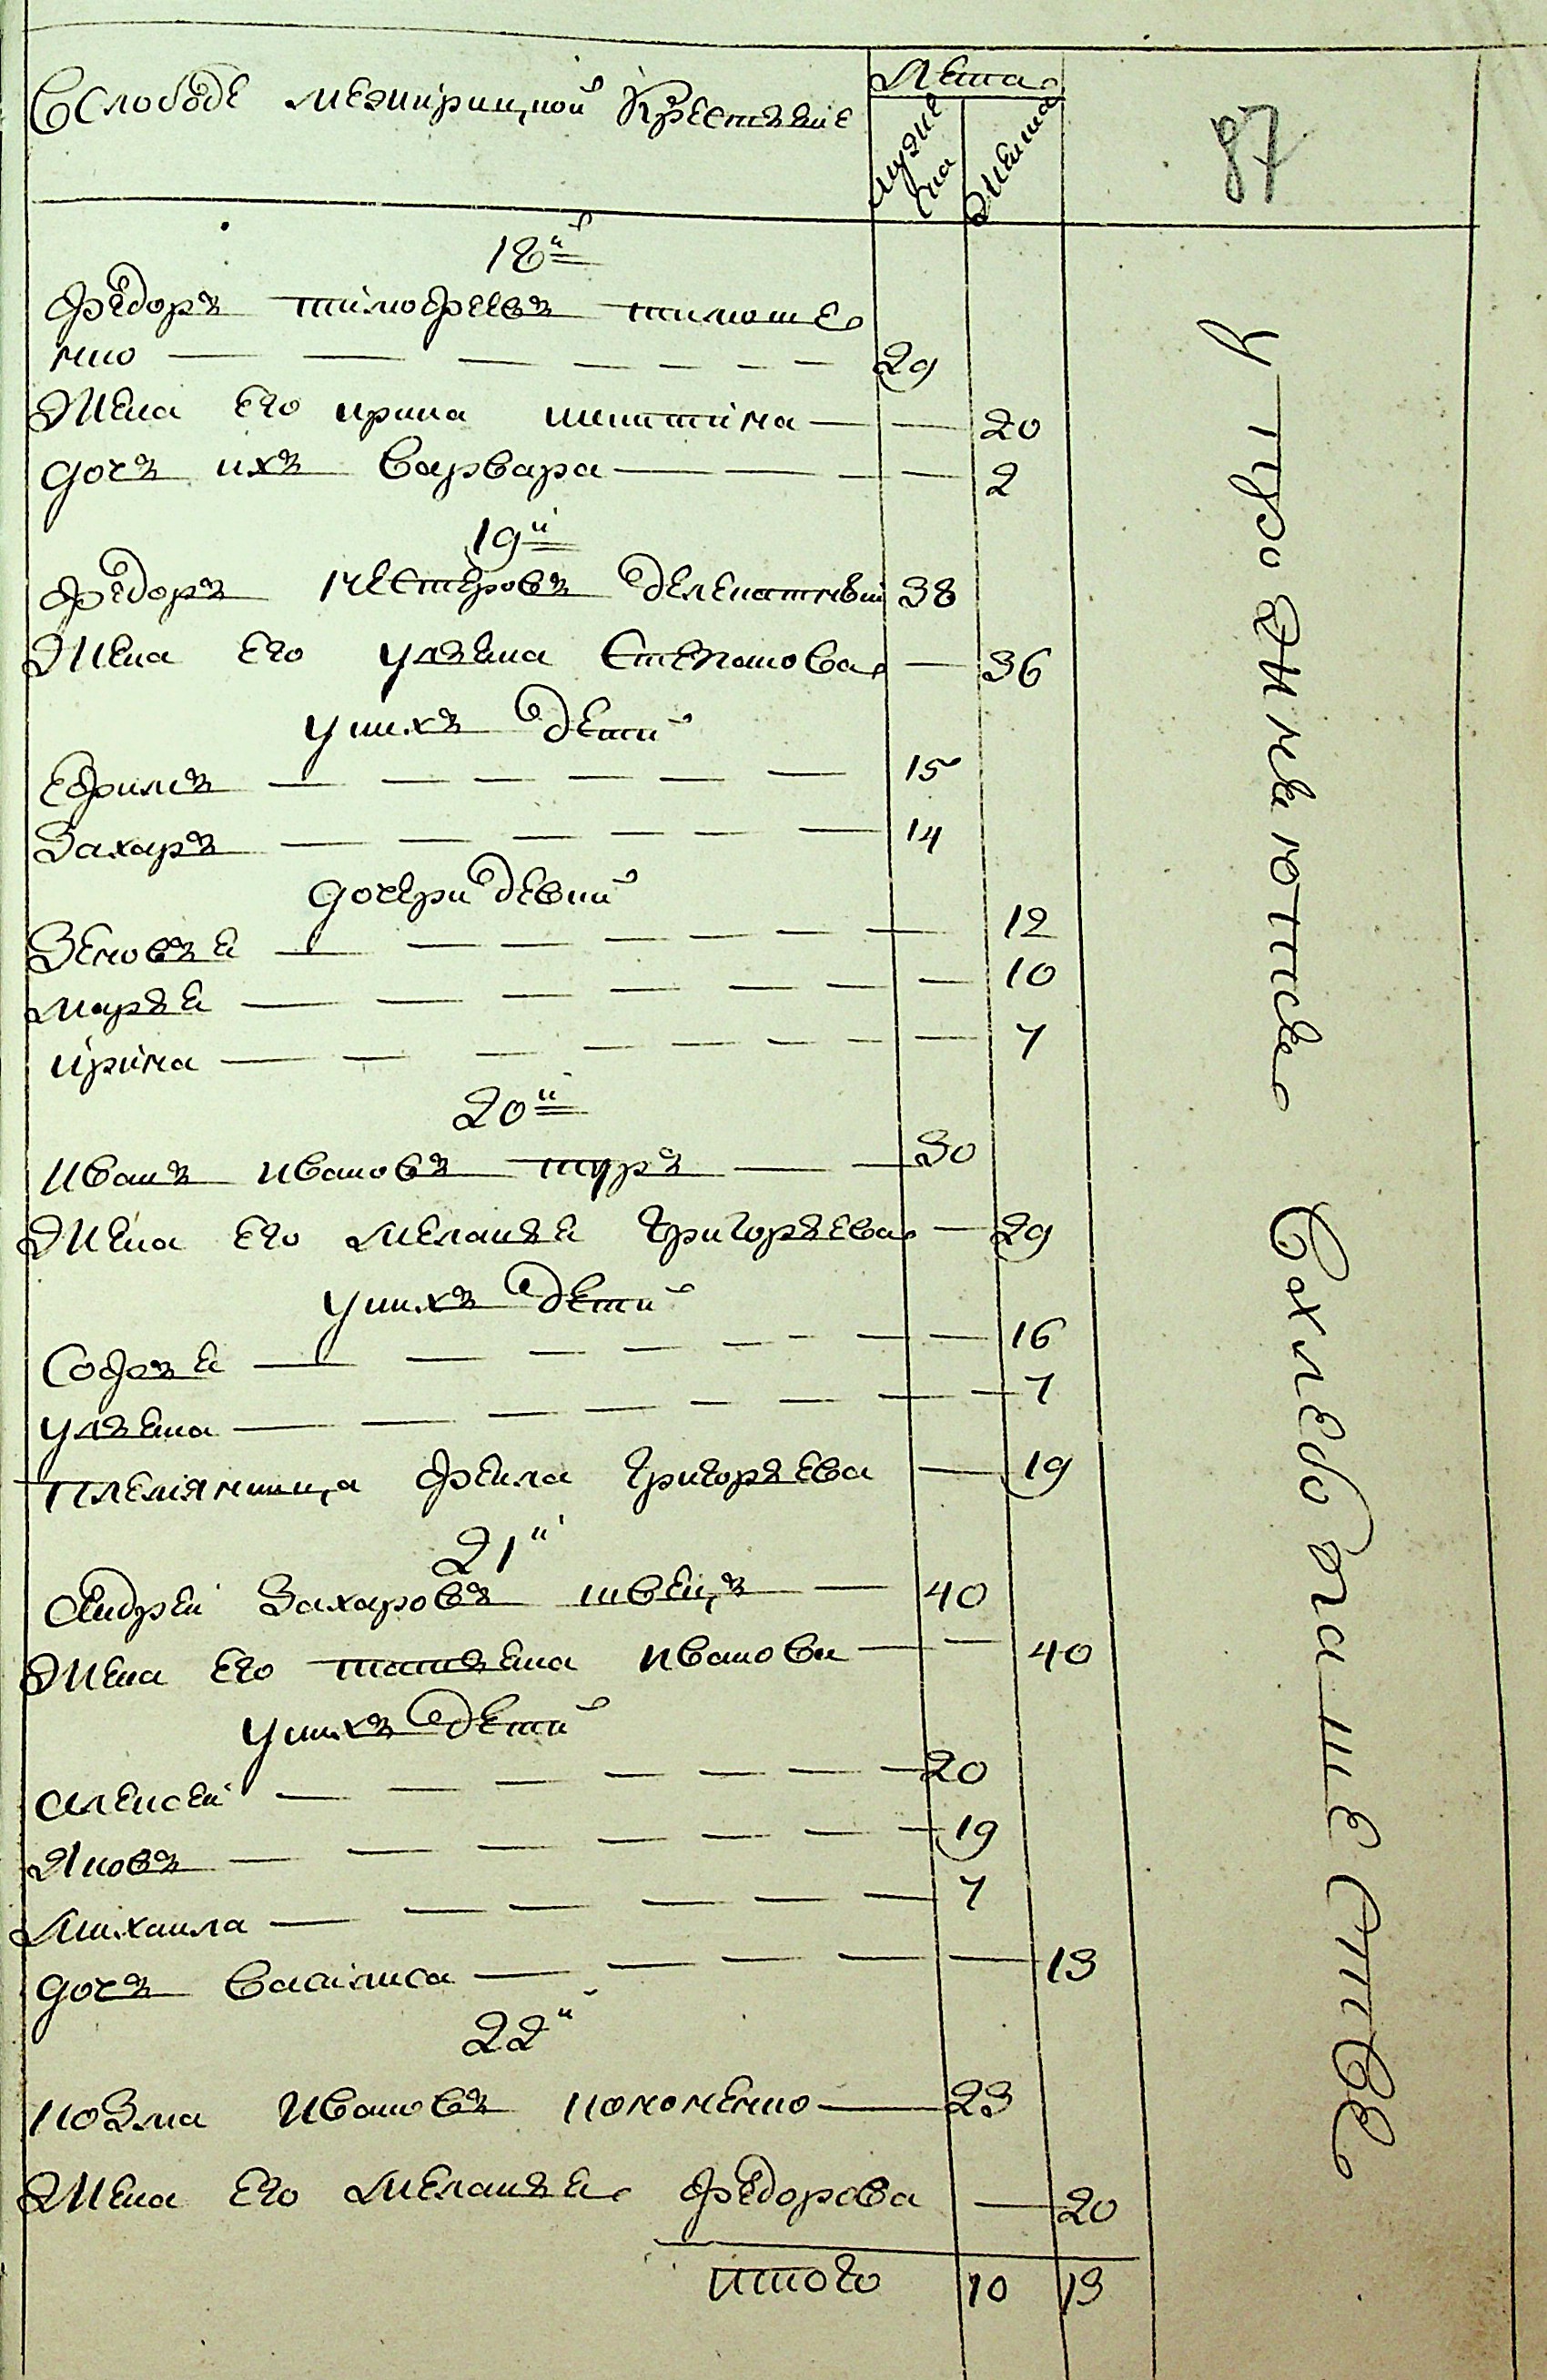 Вслободе межирицкой Крестяне
Лета
мужеска
женска
87
18й
федоръ тимофеевъ тимоше
нко 29
Жена его ирина никитина 20
дочъ ихъ варвара 2
19й
федоръ нестеровъ 38
Жена его улъяна Степанова 36
уних детей
ефимъ 15
Захаръ 14
дочери девки
Зеновъя 12
маръя 10
ирина 7
20й
иванъ ивановъ туръ 30
Жена его меланъя григоръева 29
унихъ детей
Софъя 16
улъяна 7
племянница григоръева 19
21й
Андреи Захаровъ швецъ 40
Жена его татъяна иванова 40
унихъ детей
алексеи 20
Яковъ 19
михаила 7
дочъ василиса 13
22й
козма ивановъ кононенко 23
Жена его меланъя федорова 20
итого 10 13
упрожняются
вхлебопашестве